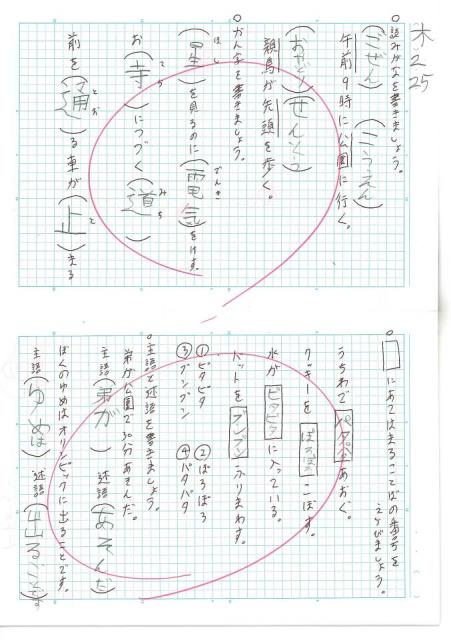 木 2/25
○読みがなを書きましょう。
(ごぜん) (こうえん)
午前9時に公園に行く。
(おやどり) (せんとう)
親鳥が先頭を歩く。
○かん字を書きましょう。
(星)を見るのに(電気)をけす。
ほし でんき
お(寺)につづく(道)
てら みち
前を(通)る車が(止)まる
とお と
○□にあてはまることばの番号を
えらびましょう。
うちわでパタパタあおぐ。
クッキーをぽろぽろこぼす。
水がピタピタに入っている。
バットをブンブンふりまわす。
①ピタピタ ②ぽろぽろ
③ブンブン ④パタパタ
○主語と述語を書きましょう。
弟が公園で30分あそんだ。
主語(弟が) 述語(あそんだ)
ぼくのゆめはオリンピックに出ることです。
主語(ゆめは) 述語(出ることです)